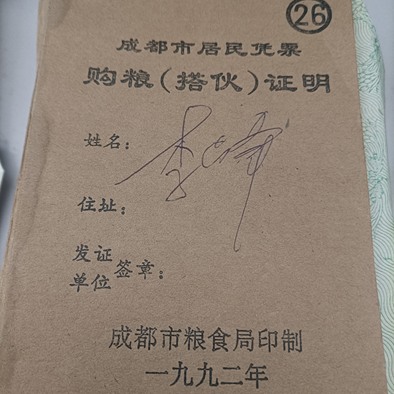 26
成都市居民凭票
购粮(搭伙)证明
姓名:
住址:
发证
单位 签章:
成都市粮食局印制
一九九二年